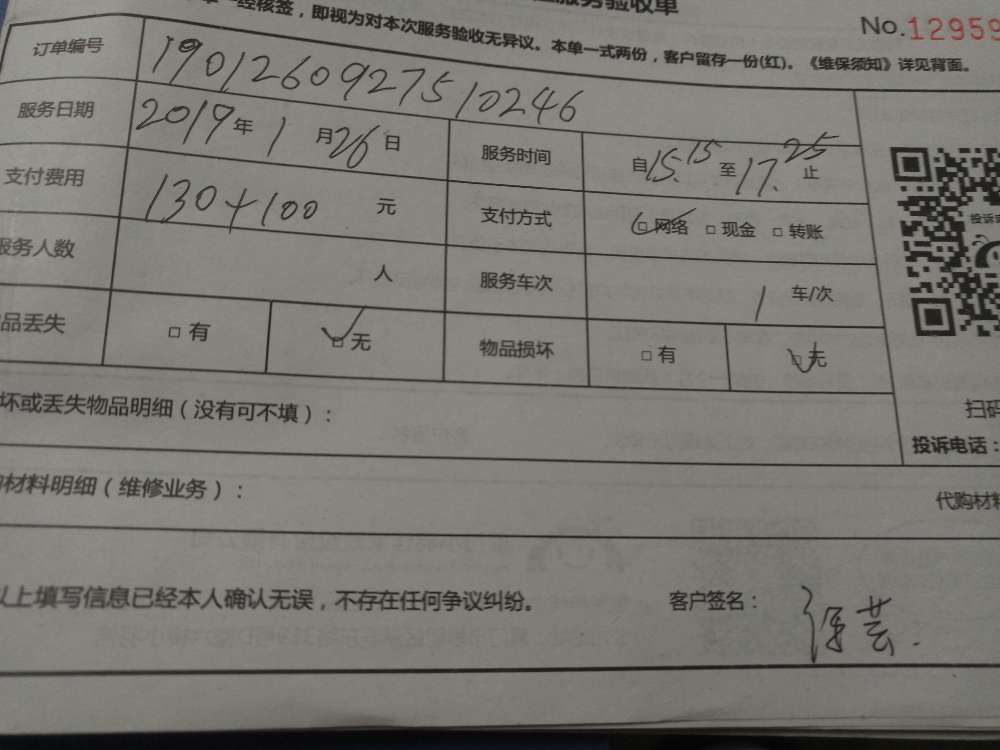 服务验收单
No.12959
单一经核签，即视为对本次服务验收无异议。本单一式两份，客户留存一份(红)。《维保须知》详见背面。
订单编号 1901260927510246
服务日期 2019年1月26日 服务时间 自15.15至17.25止
支付费用 130+100元 支付方式 □网络 □现金 □转账
服务人数 人 服务车次 1车/次
品丢失 □有 □无 物品损坏 □有 □无
投诉
坏或丢失物品明细（没有可不填）：
扫码
投诉电话：
材料明细（维修业务）：
代购材料
以上填写信息已经本人确认无误，不存在任何争议纠纷。 客户签名：